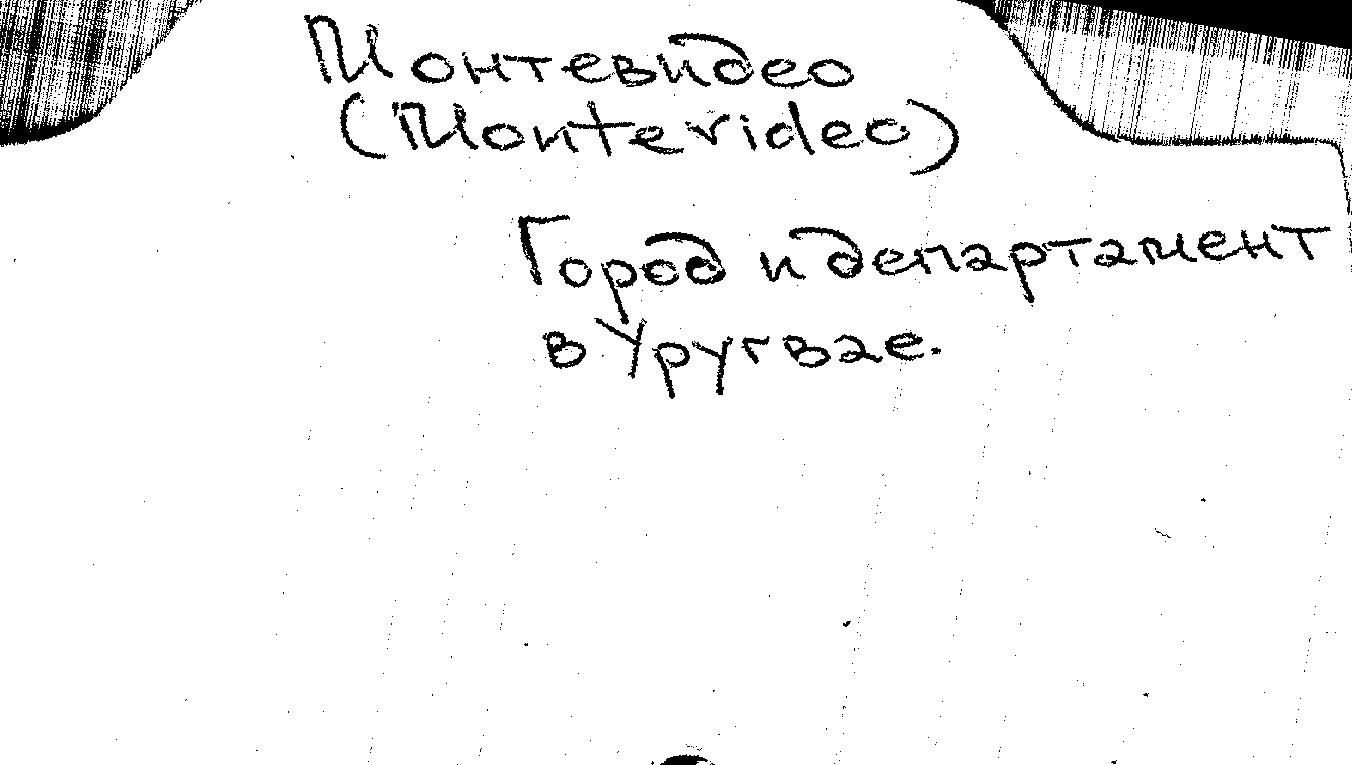 Монтевидео
(Montevideo)
Город и департамент
в Уругвае.